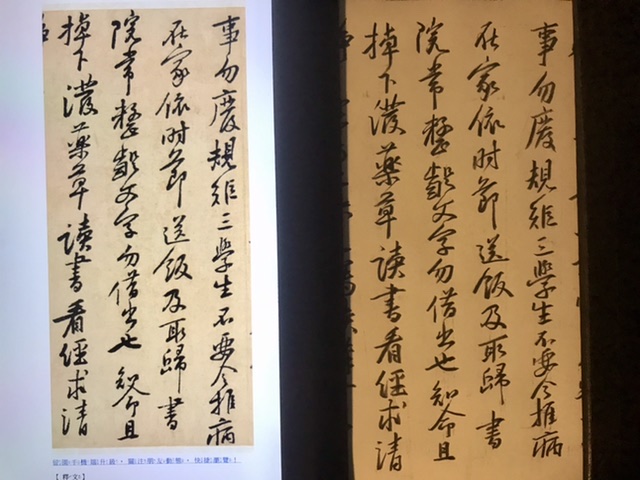 事勿廢規矩三學生不要令推病
在家依時節送飯及取歸書
院常整齪文字勿借出也知命且
掉下潑藥草讀書看經求清
【釋文】
事勿廢規矩三學生不要令推病
在家依時節送飯及取歸書
院常整齪文字勿借出也知命且
掉下潑藥草讀書看經求清